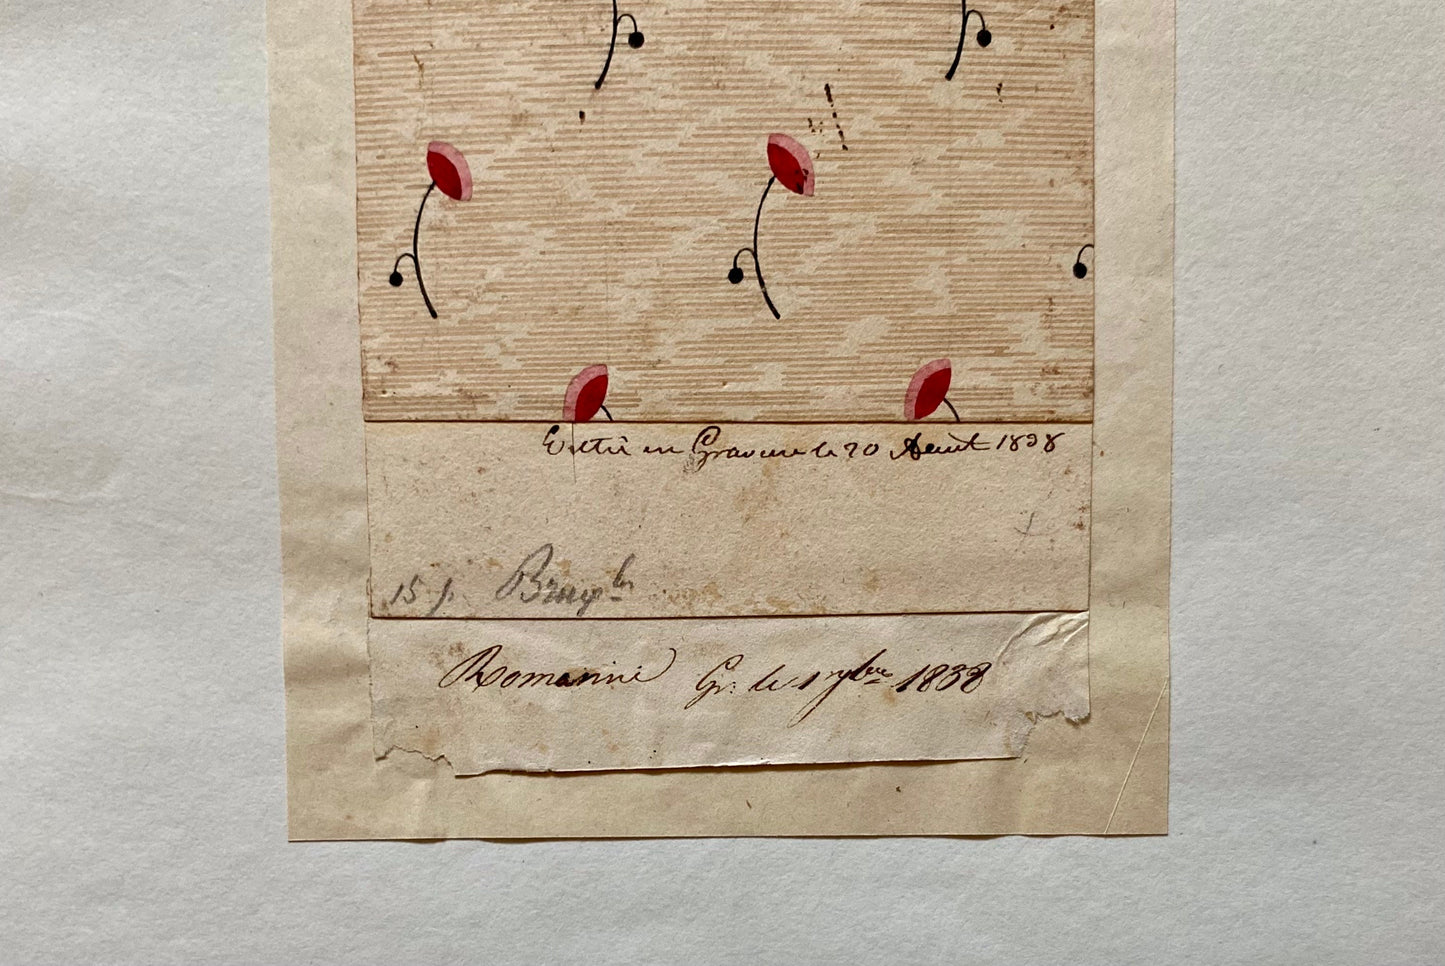 Entré en Gravure le 20 Aout 1838
15 j. Bruyer
Romanini Gr: le 1 9bre 1838